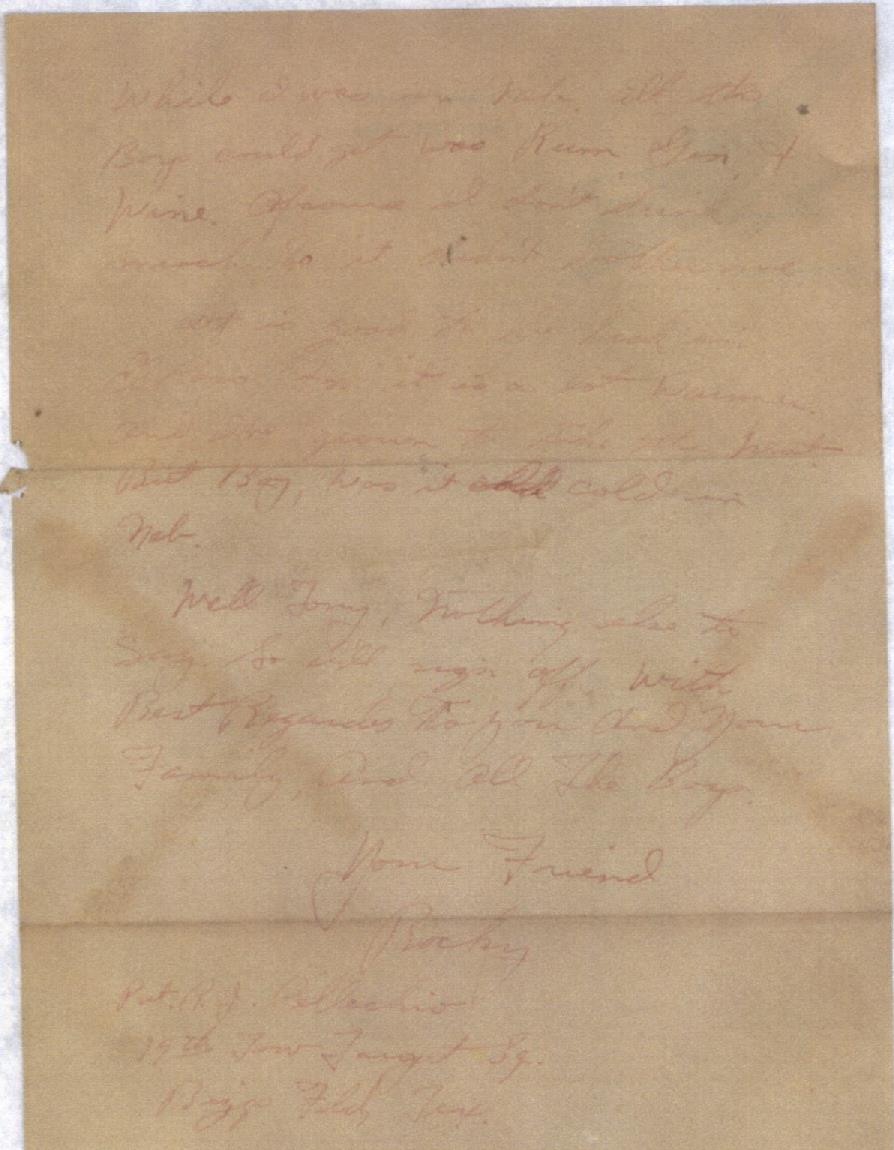 While I was in Neb. all the
Boys could get was Rum Gin &
Wine. Of course I don't drink
much So it didn't bother me
It is good to be back in
Texas for it is a lot warmer.
and I've grown to like the
But Boy, was it cold in
Neb.
Well Tony, Nothing else to
Say So will sign off. With
Best Regards To you And Your
Family, And All The Boys.
Your Friend
Rocky
Pvt. R. J. Pellechio
19th Tow Target Sq.
Biggs Field, Tex.